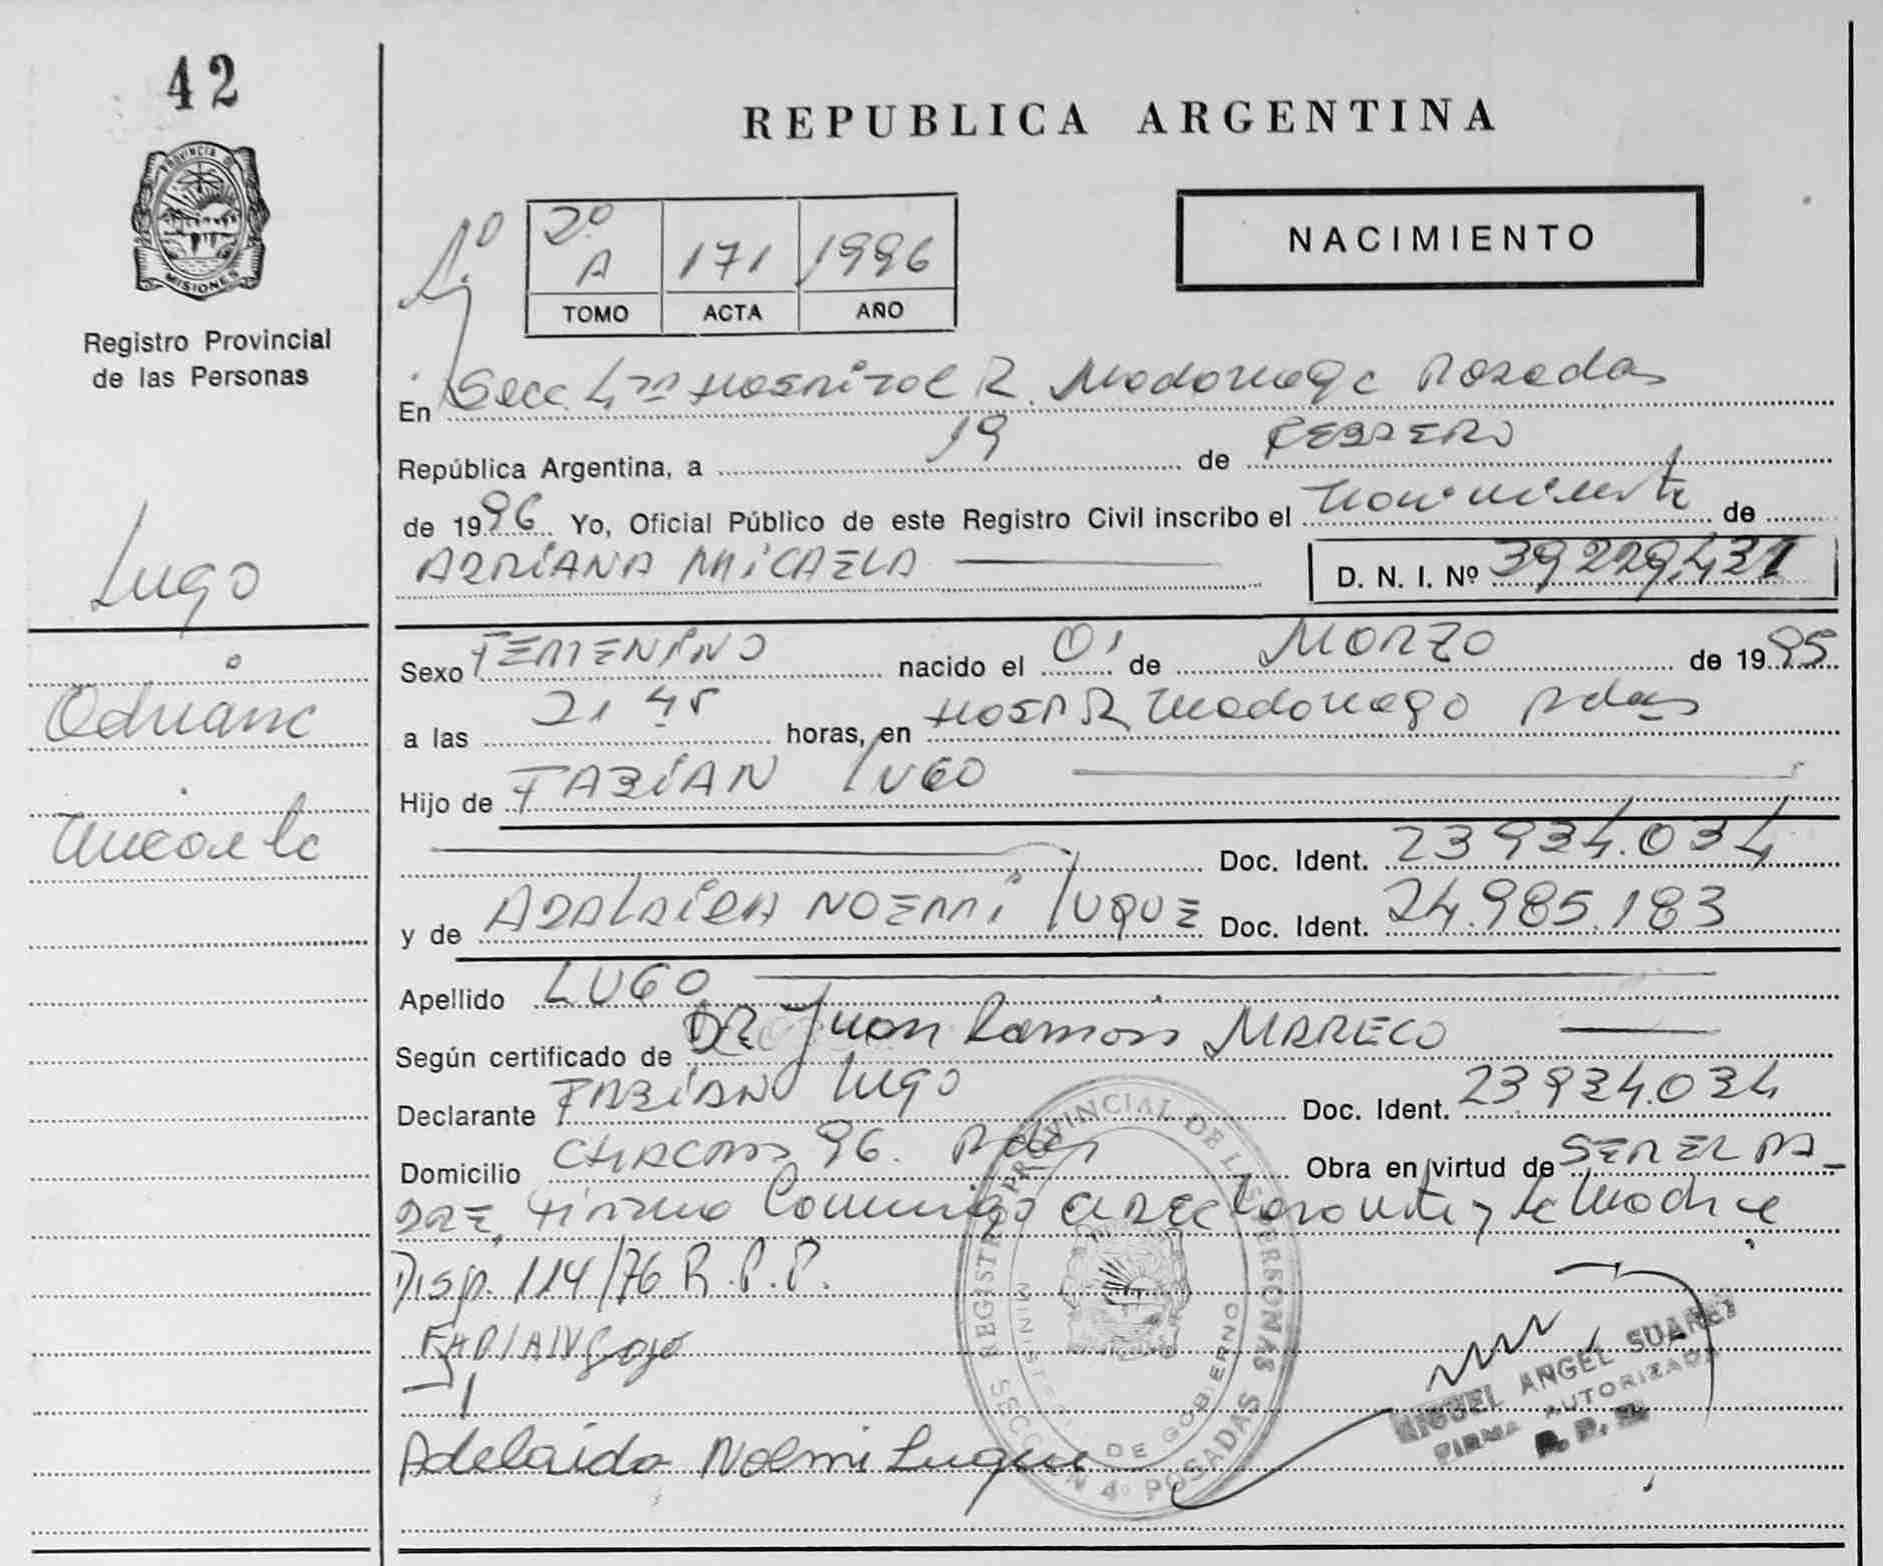 42
PROVINCIA D
MISIONES
Registro Provincial
de las Personas
Lugo
Adriana
Micaela
REPUBLICA ARGENTINA
1º
2º A 171 1996
TOMO ACTA AÑO
NACIMIENTO
En Secc 4ta Hospital R. Madariaga Posadas
República Argentina, a 19 de FEBRERO
de 1996 Yo, Oficial Público de este Registro Civil inscribo el nacimiento de
ADRIANA MICAELA D. N. I. Nº 39.229.431
Sexo FEMENINO nacido el 01 de MARZO de 1995
a las 21 45 horas, en HOSP R Madariaga Pdas
Hijo de FABIAN LUGO
Doc. Ident. 23.934.034
y de ADALAIDA NOEMI LUQUE Doc. Ident. 24.985.183
Apellido LUGO
Según certificado de DR Juan Ramon MARECO
Declarante FABIAN Lugo Doc. Ident. 23.934.034
Domicilio CHACRA 96. Pdas Obra en virtud de SER EL PA_
DRE, Firman Conmigo el DEclarante y la Madre
Disp. 114/76 R.P.P.
FABIAN Lugo
Adelaida Noemi Luque
REGISTRO PROVINCIAL DE LAS PERSONAS
MINISTERIO DE GOBIERNO
SECCION 4º POSADAS
MIGUEL ANGEL SUAREZ
FIRMA AUTORIZADA